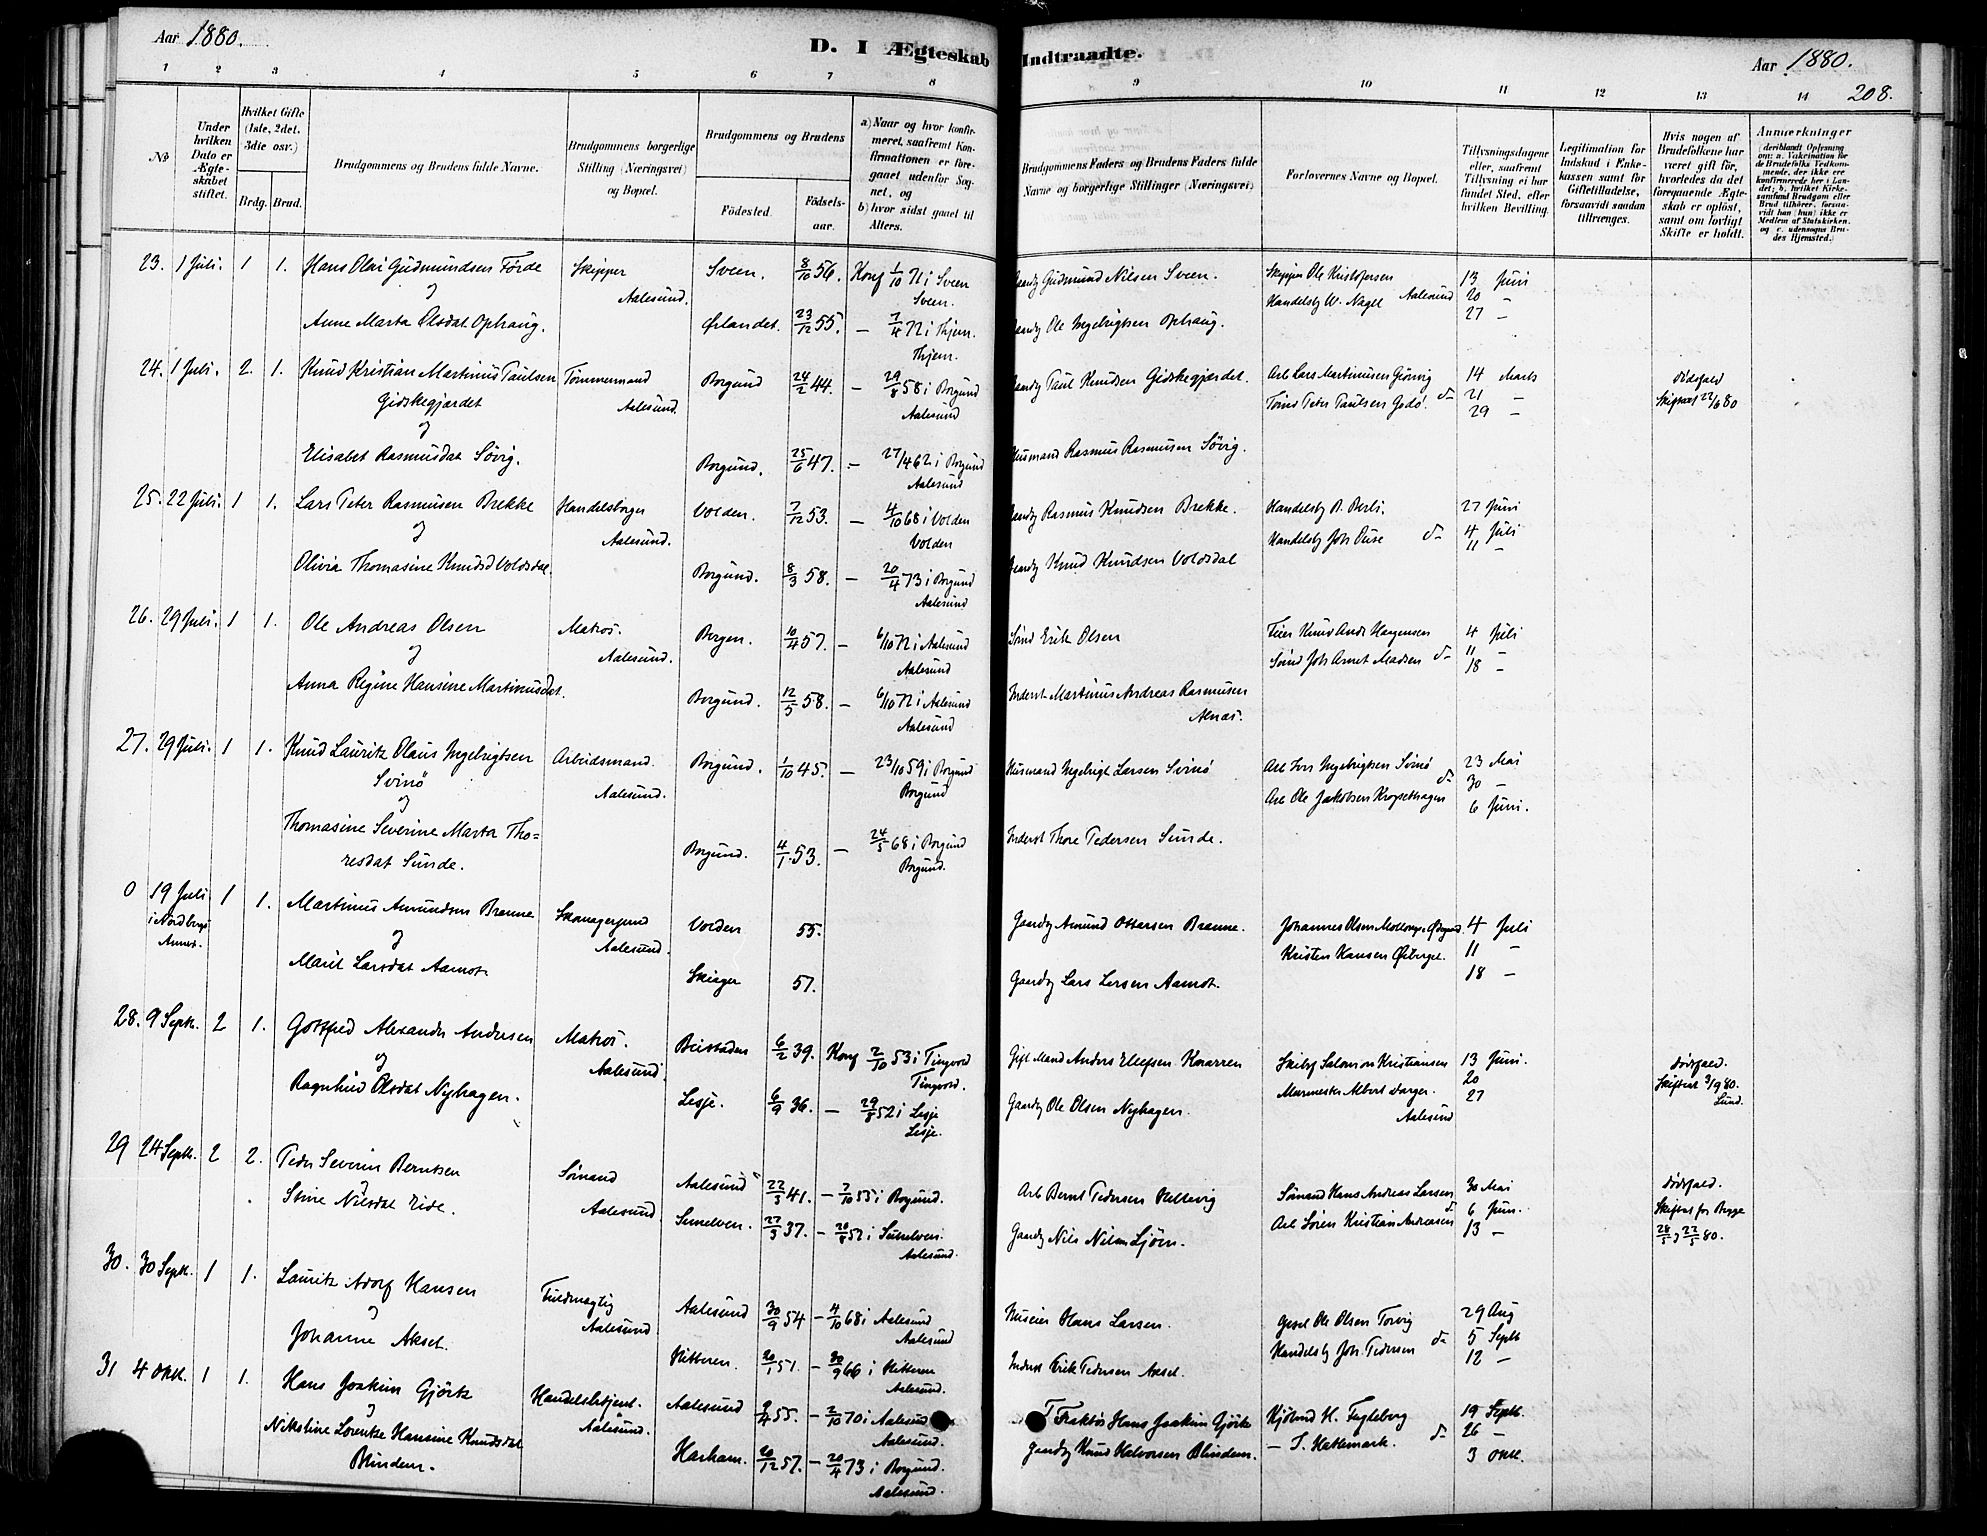 Aar 1880.
D. I Ægteskab Indtraadte.
Aar 1880.
208.
1 2 3 4 5 6 7 8 9 10 11 12 13 14
No
Under hvilken Dato er Ægteskabet stiftet.
Hvilket Gifte (1ste, 2det, 3die osv.)
Brdg. Brud.
Brudgommens og Brudens fulde Navne.
Brudgommens borgerlige Stilling (Næringsvei) og Bopæl.
Brudgommens og Brudens
Födested. Födsels-aar.
a) Naar og hvor konfirmeret, saafremt Konfirmationen er foregaaet udenfor Sognet, og b) hvor sidst gaaet til Alters.
Brudgommens Faders og Brudens Faders fulde Navne og borgerlige Stillinger (Næringsvei)
Forlovernes Navne og Bopæl.
Tillysningsdagene eller, saafremt Tillysning ei har fundet Sted, efter hvilken Bevilling.
Legitimation for Indskud i Enkekassen samt for Giftetilladelse, forsaavidt saadan tiltrænges.
Hvis nogen af Brudefolkene har været gift før, hvorledes da det foregaaende Ægteskab er oplöst, samt om lovligt Skifte er holdt.
Anmerkninger (deriblandt Oplysning om: a. Vakcination for de Brudefolks Vedkommende, der ikke ere konfirmerede her i Landet; b. hvilket Kirkesamfund Brudgom eller Brud tilhörer, forsaavidt han (hun) ikke er Medlem af Statskirken, og c. udensogns Brudes Hjemsted.)
23. 1 Juli. 1 1. Hans Olai Gudmundsen Förde Skipper Sveen. 8/10 56. Konf 1/10 71 i Sveen Gaardb Gudmund Nilsen Sveen. Skipper Ole Kristofersen 13 Juni
og Aalesund. Sveen. Handelsb W. Nagel Aalesund 20
Anne Marta Olsdat Ophaug. Ørlandet. 23/12 55. — 7/4 72 i Thjem. Gaardb Ole Ingebrigtsen Ophaug. 27 -
Thjem.
24. 1 Juli. 2. 1. Knud Kristian Martinus Paulsen Tömmermand Borgund 24/2 44. — 29/8 58 i Borgund Gaardb Paul Knudsen Gidskegjærdet. Arb Lars Martinusen 14 Marts Dödsfald
Gidskegjærdet Aalesund. Aalesund Peter Paulsen Godö. do 21 - Skifteat 22/6 80
og 29 -
Elisabet Rasmusdat Sövig. Borgund. 25/6 47. — 27/4 62 i Borgund Husmand Rasmus Rasmusen Sövig.
Aalesund
25. 22 Juli. 1 1. Lars Peter Rasmusen Brekke Handelsborger Volden. 7/12 53. — 4/10 68 i Volden Gaardb Rasmus Knudsen Brekke. Handelsb 27 Juni
og Aalesund. Volden Handelsb Joh do 4 Juli
11 -
Olivia Thomasine Knudsd Voldsdal. Borgund. 8/3 58. — 20/4 73 i Borgund Gaardb Knud Knudsen Voldsdal
Aalesund
26. 29 Juli. 1 1. Ole Andreas Olsen Matros. Bergen. 10/4 57. — 6/10 72 i Aalesund Sömd Erik Olsen Knud Andr 4 Juli
og Aalesund. Aalesund Sömd Joh Arnet Madsen do 11 -
18 -
Anna Regine Hansine Martinusdat. Borgund. 12/5 58. — 6/10 72 i Aalesund Inderst Martinus Andreas Rasmusen
Aalesund Alnæs.
27. 29 Juli. 1 1. Knud Lauritz Olaus Ingebrigtsen Arbeidsmand Borgund. 1/10 45. — 23/10 59 i Borgund Husmand Ingebrigt Larsen Svinö Arb Ingebrigtsen Svinö 23 Mai
Svinö Aalesund. Borgund do 30 -
og Arb Ole Jakobsen 6 Juni.
Thomasine Severine Marta Tho= Borgund. 4/1 53. — 24/5 68 i Borgund Inderst Thore Pedersen Sunde.
resdat Sunde. Borgund.
0 19 Juli 1 1. Martinus Amundsen Braune Skomagersvend Volden 55. Gaardb Amund Ottersen Braune. Johannes Olsen 4 Juli
i Nordbergs og Aalesund. Kristen Hansen 11 -
Annex. Marit Larsdat Aamot Skiager 57. Gaardb Lars Aamot. 18 -
28. 9 Septr. 2 1. Gottfred Alexander Andersen Matros. Beitstaden 6/2 39. Konf 2/10 53 i Tingvold Gift Mand Anders Ellefsen Knarren Salomon Kristiansen 13 Juni. Dödsfald.
og Aalesund. Tingvold. Albert 20 Skiftet 3/9 80.
Ragnhild Olsdat Nyhagen. Lesje. 6/9 36. — 29/8 52 i Lesje Gaardb Ole Olsen Nyhagen. Aalesund 27 Lund.
Lesje.
29 24 Septr. 2 2. Peder Severin Berntsen Sömand Aalesund 22/3 41. — 7/10 55 i Borgund. Arb Bernt Pedersen Sömand Hans Andreas Larsen 30 Mai Dödsfald.
og Aalesund do 6 Juni.
Stine Nilsdat Eide. Sunelven. 27/3 37. — 20/8 52 i Sunelven. Gaardb Nils Nilsen Ljöen. Arb Sören Kristian Andreasen 13 - Skiftet for Begge
Aalesund. 28/5 og 22/5 80.
30. 30 Septr. 1 1. Lauritz Adolf Hansen Fuldmægtig Aalesund 30/9 54 — 4/10 68 i Aalesund Huseier Hans Larsen. Gjest Ole Olsen Torvig 29 Aug
og Aalesund Aalesund 5 Septr
Johanne Aksel. Hitteren. 20/1 51. — 30/9 66 i Hitteren Inderst Erik Pedersen Aksel. Handelsb Joh. Pedersen do 12 -
Aalesund.
31 4 Okt. 1 1. Hans Joakim Gjörtz Handelsbetjent. Aalesund 9/4 55. — 2/10 70 i Aalesund Hans Joakim Gjörtz Kjöbmd H. 19 Septr.
og Aalesund. Aalesund. do 26 -
Nikoline Lorentze Hansine Knudsdat Harham. 20/12 57. — 20/4 73 i Borgund. Gaardb Knud Halvorsen Blindem. — S. Hatlemark. 3 Okt.
Blindem. Aalesund.